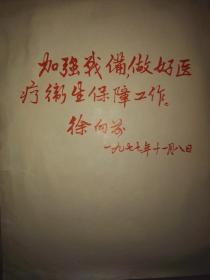 加強战備,做好医
疗衛生保障工作。
徐向前
一九七七年十一月八日